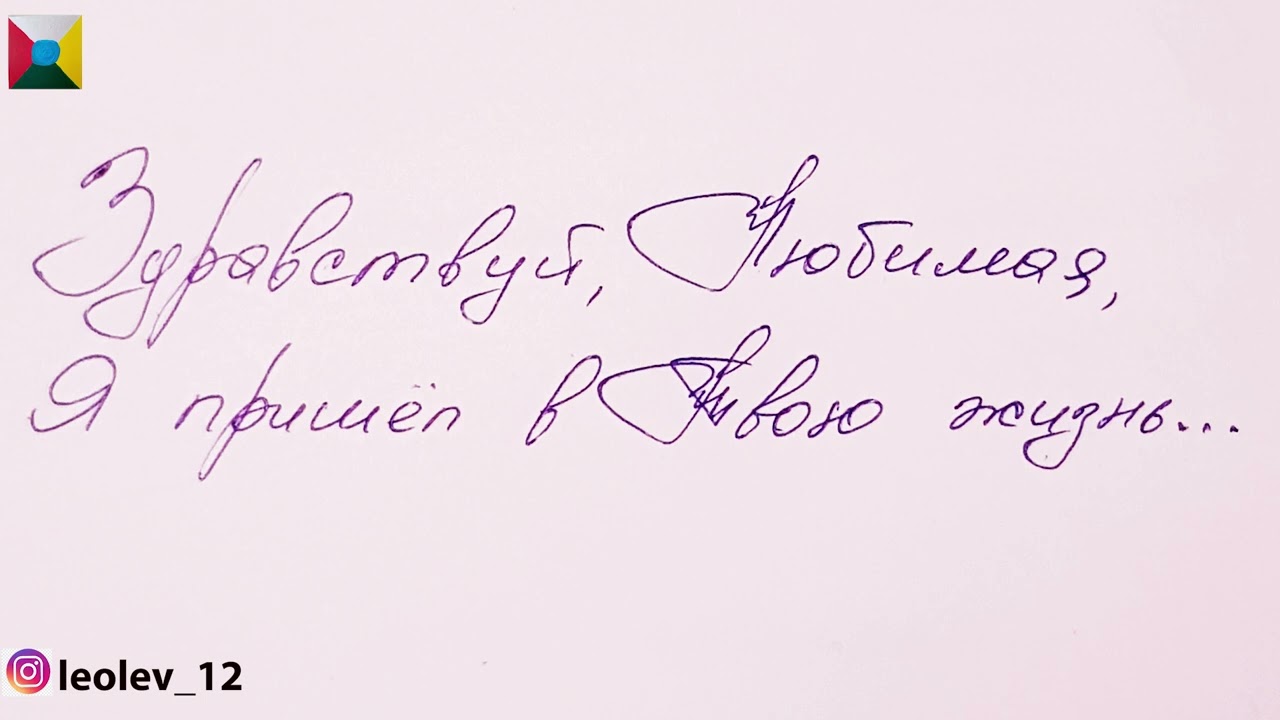 Здравствуй, Любимая,
Я пришёл в Твою жизнь...
leolev_12